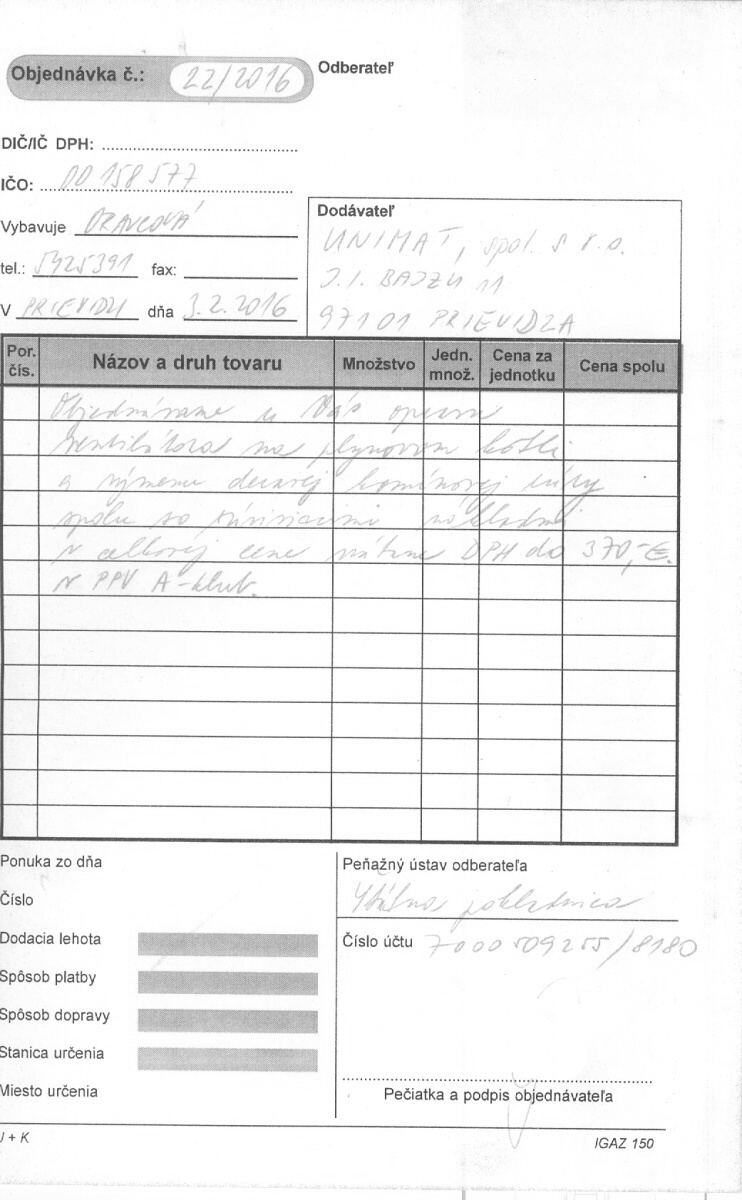 Objednávka č.: 22/2016
Odberateľ
DIČ/IČ DPH:
IČO: 00158577
Vybavuje ORAVCOVÁ
tel.: 5425391 fax:
V PRIEVIDZI dňa 3.2.2016
Dodávateľ
UNIMAT, spol. s r.o.
J.I. BAJZU 11
97101 PRIEVIDZA
Por. čís. Názov a druh tovaru Množstvo Jedn. množ. Cena za jednotku Cena spolu
Objednávame u Vás opravu
ventilátora na plynovom kotli
a výmenu deravej komínovej rúry
spolu so súvisiacimi nákladmi
v celkovej cene vrátane DPH do 370,-€.
v PPV A-klub.
Ponuka zo dňa
Číslo
Dodacia lehota
Spôsob platby
Spôsob dopravy
Stanica určenia
Miesto určenia
Peňažný ústav odberateľa
Štátna pokladnica
Číslo účtu 7000509255/8180
Pečiatka a podpis objednávateľa
I + K
IGAZ 150